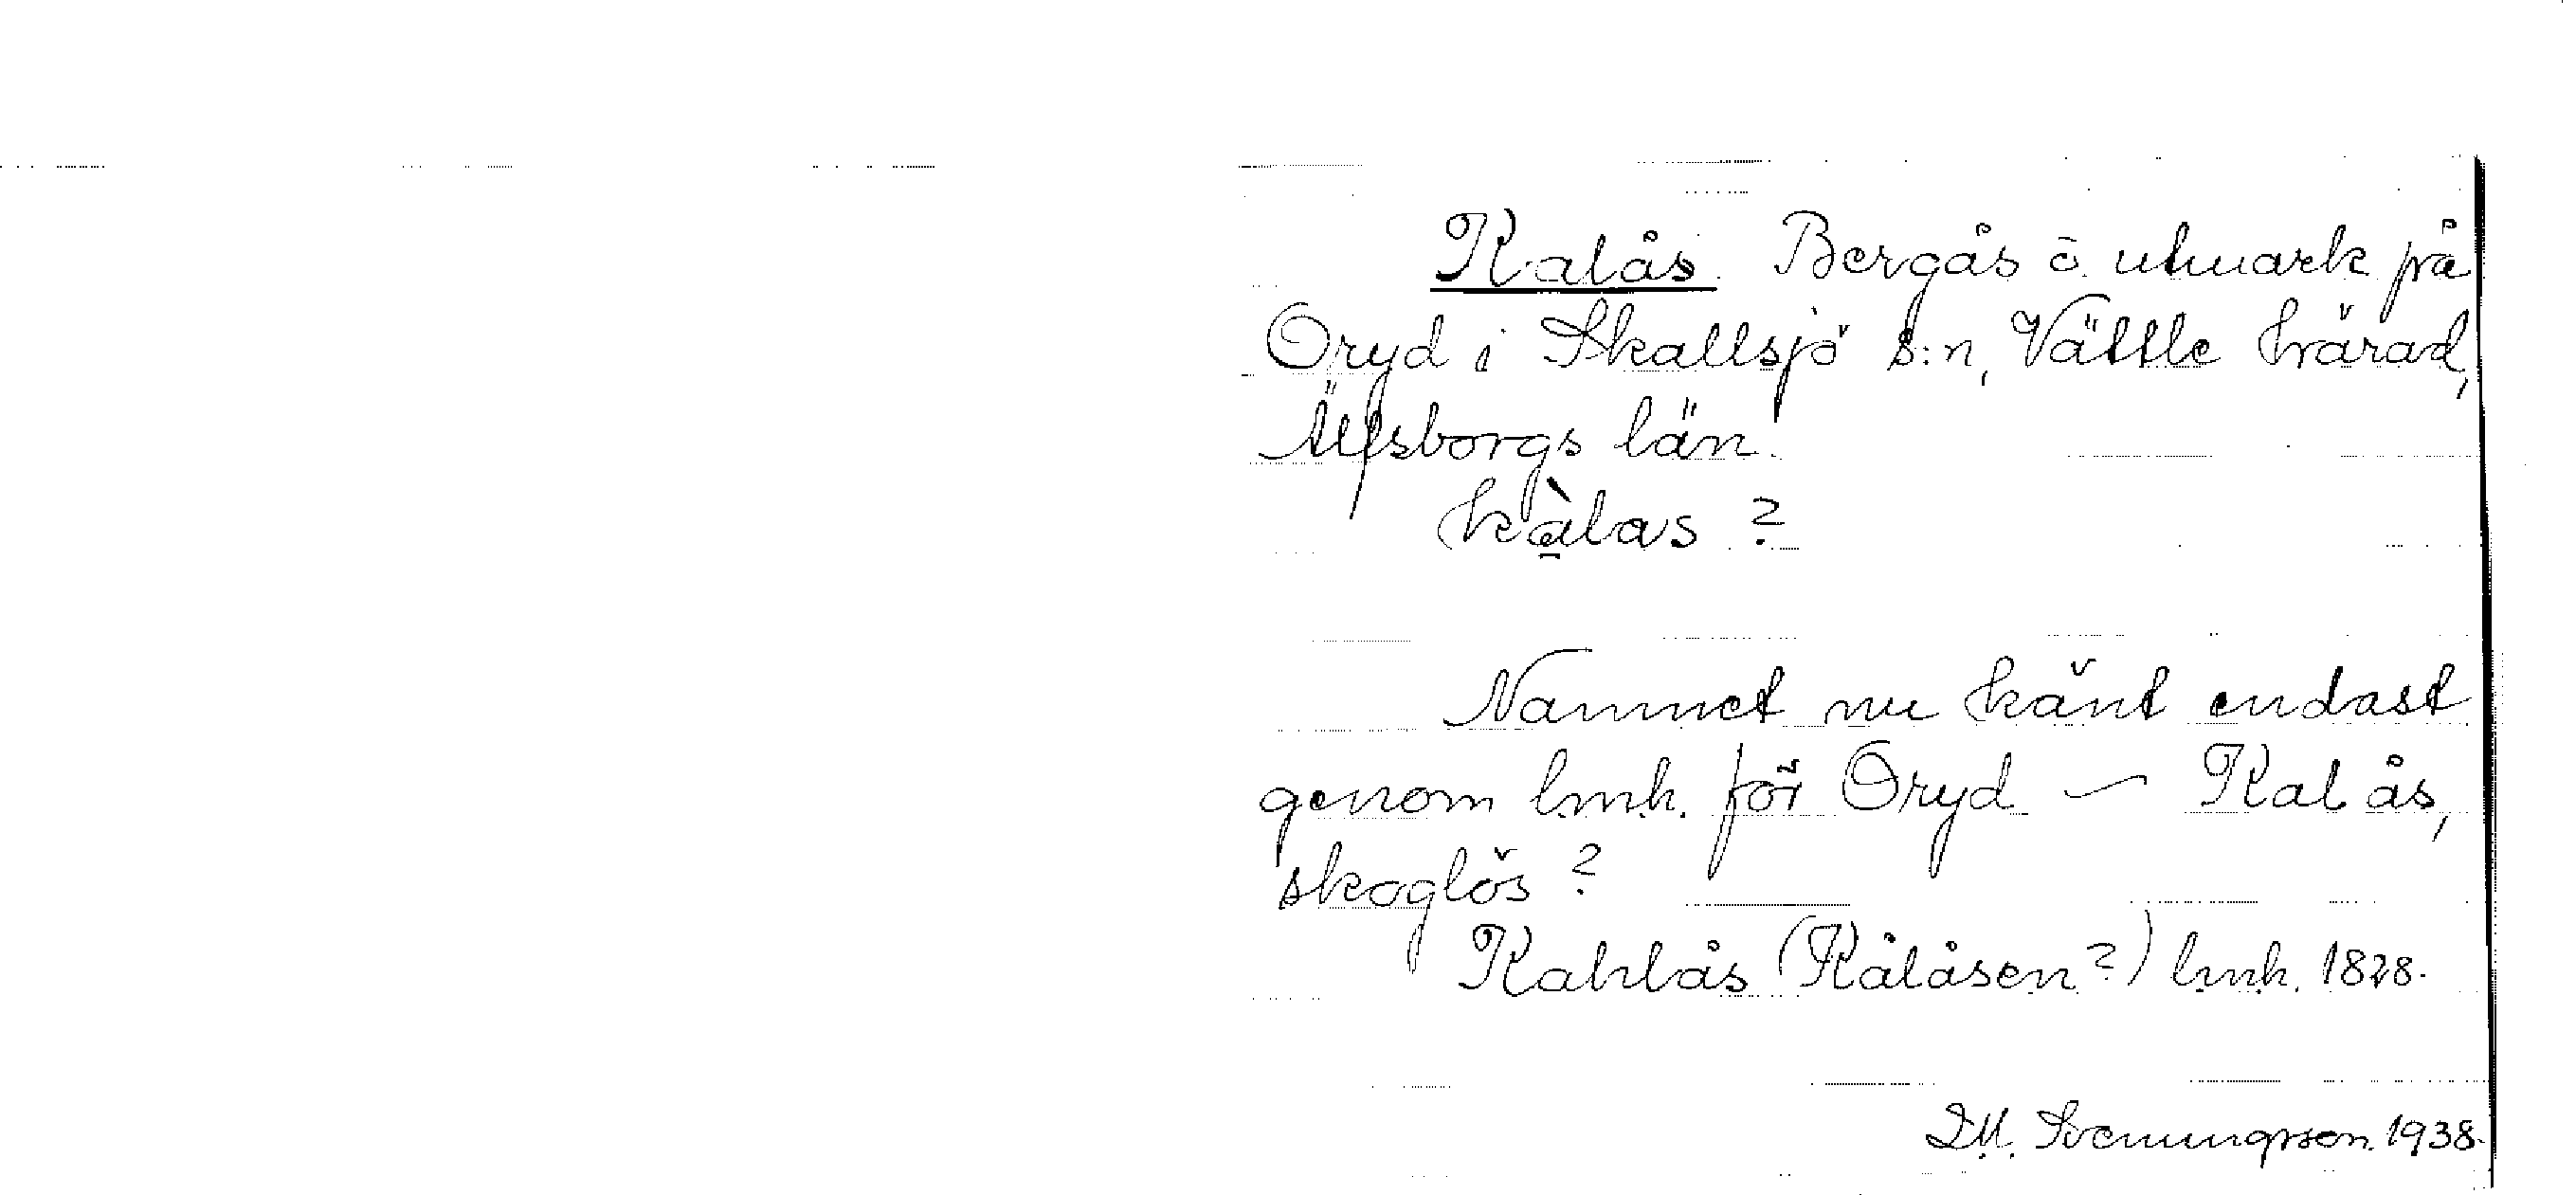 Kalås. Bergås ō. utmark på
Oryd i Skallsjö s:n, Vättle härad,
Älfsborgs län.
kàlas ?
Namnet nu känt endast
genom lmh. för Oryd — Kal ås,
skoglös ?
Kahlås (Kålåsen?) lmh. 1828.
D.M. Svenungsson. 1938.